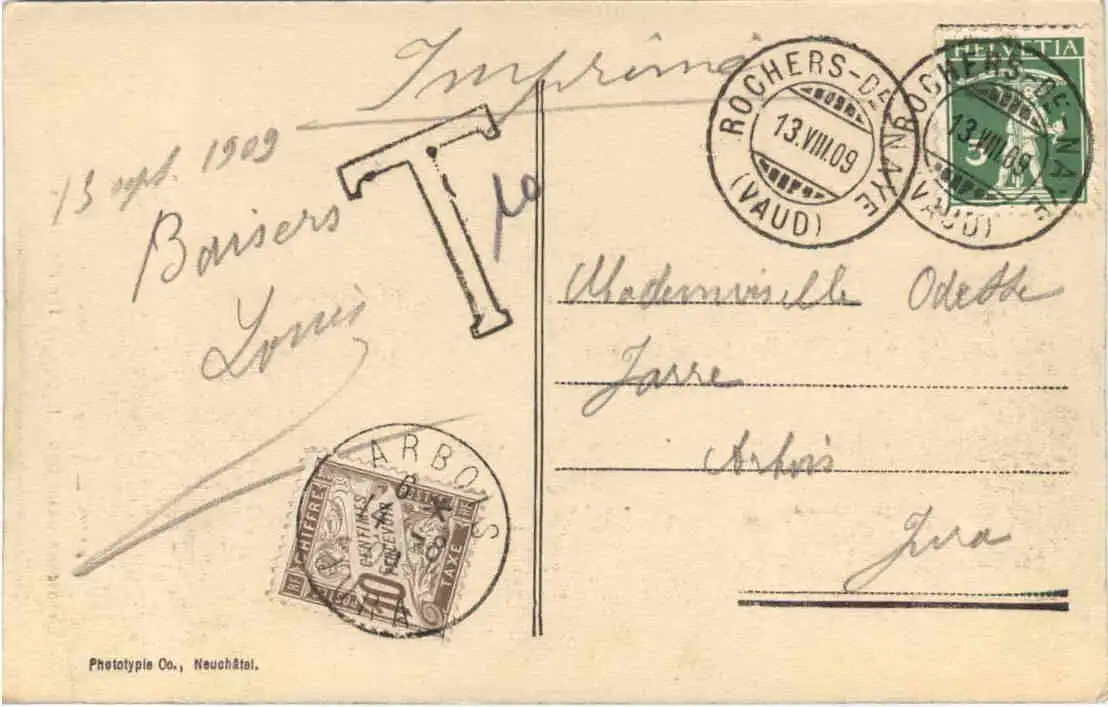 Imprimé
13 sept. 1909
Baisers
Louis
T
10
ROCHERS-DE-NAYE
13.VIII.09
(VAUD)
HELVETIA
5
ROCHERS-DE-NAYE
13.VIII.09
(VAUD)
Mademoiselle Odette
Jarre
Arbois
Jura
ARBOIS
CHIFFRE
TAXE
CENTIMES
A PERCEVOIR
10
Phototypie Co., Neuchâtel.